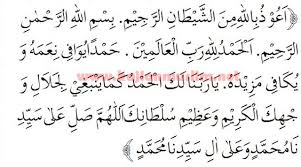 ﴿اَعُوْذُبِاللهِ مِنَ الشَّيْطَانِ الرَّجِيْمِ. بِسْمِ اللهِ الرَّحْمٰنِ
الرَّحِيْمِ. اَلْحَمْدُ لِلّٰهِ رَبِّ الْعَالَمِيْنَ. حَمْدًا يُوَافِى نِعَمَهُ وَ
يُكَافِى مَزِيْدَهُ. يَا رَبَّنَا لَكَ الْحَمْدُ كَمَا يَنْبَغِيْ لِجَلَالِ وَ
جْهِكَ الْكَرِيْمِ وَعَظِيْمِ سُلْطَانِكَ اَللّٰهُمَّ صَلِّ عَلٰى سَيِّدِ
نَا مُحَمَّدٍ وَعَلٰى اٰلِ سَيِّدِنَا مُحَمَّدٍ﴾